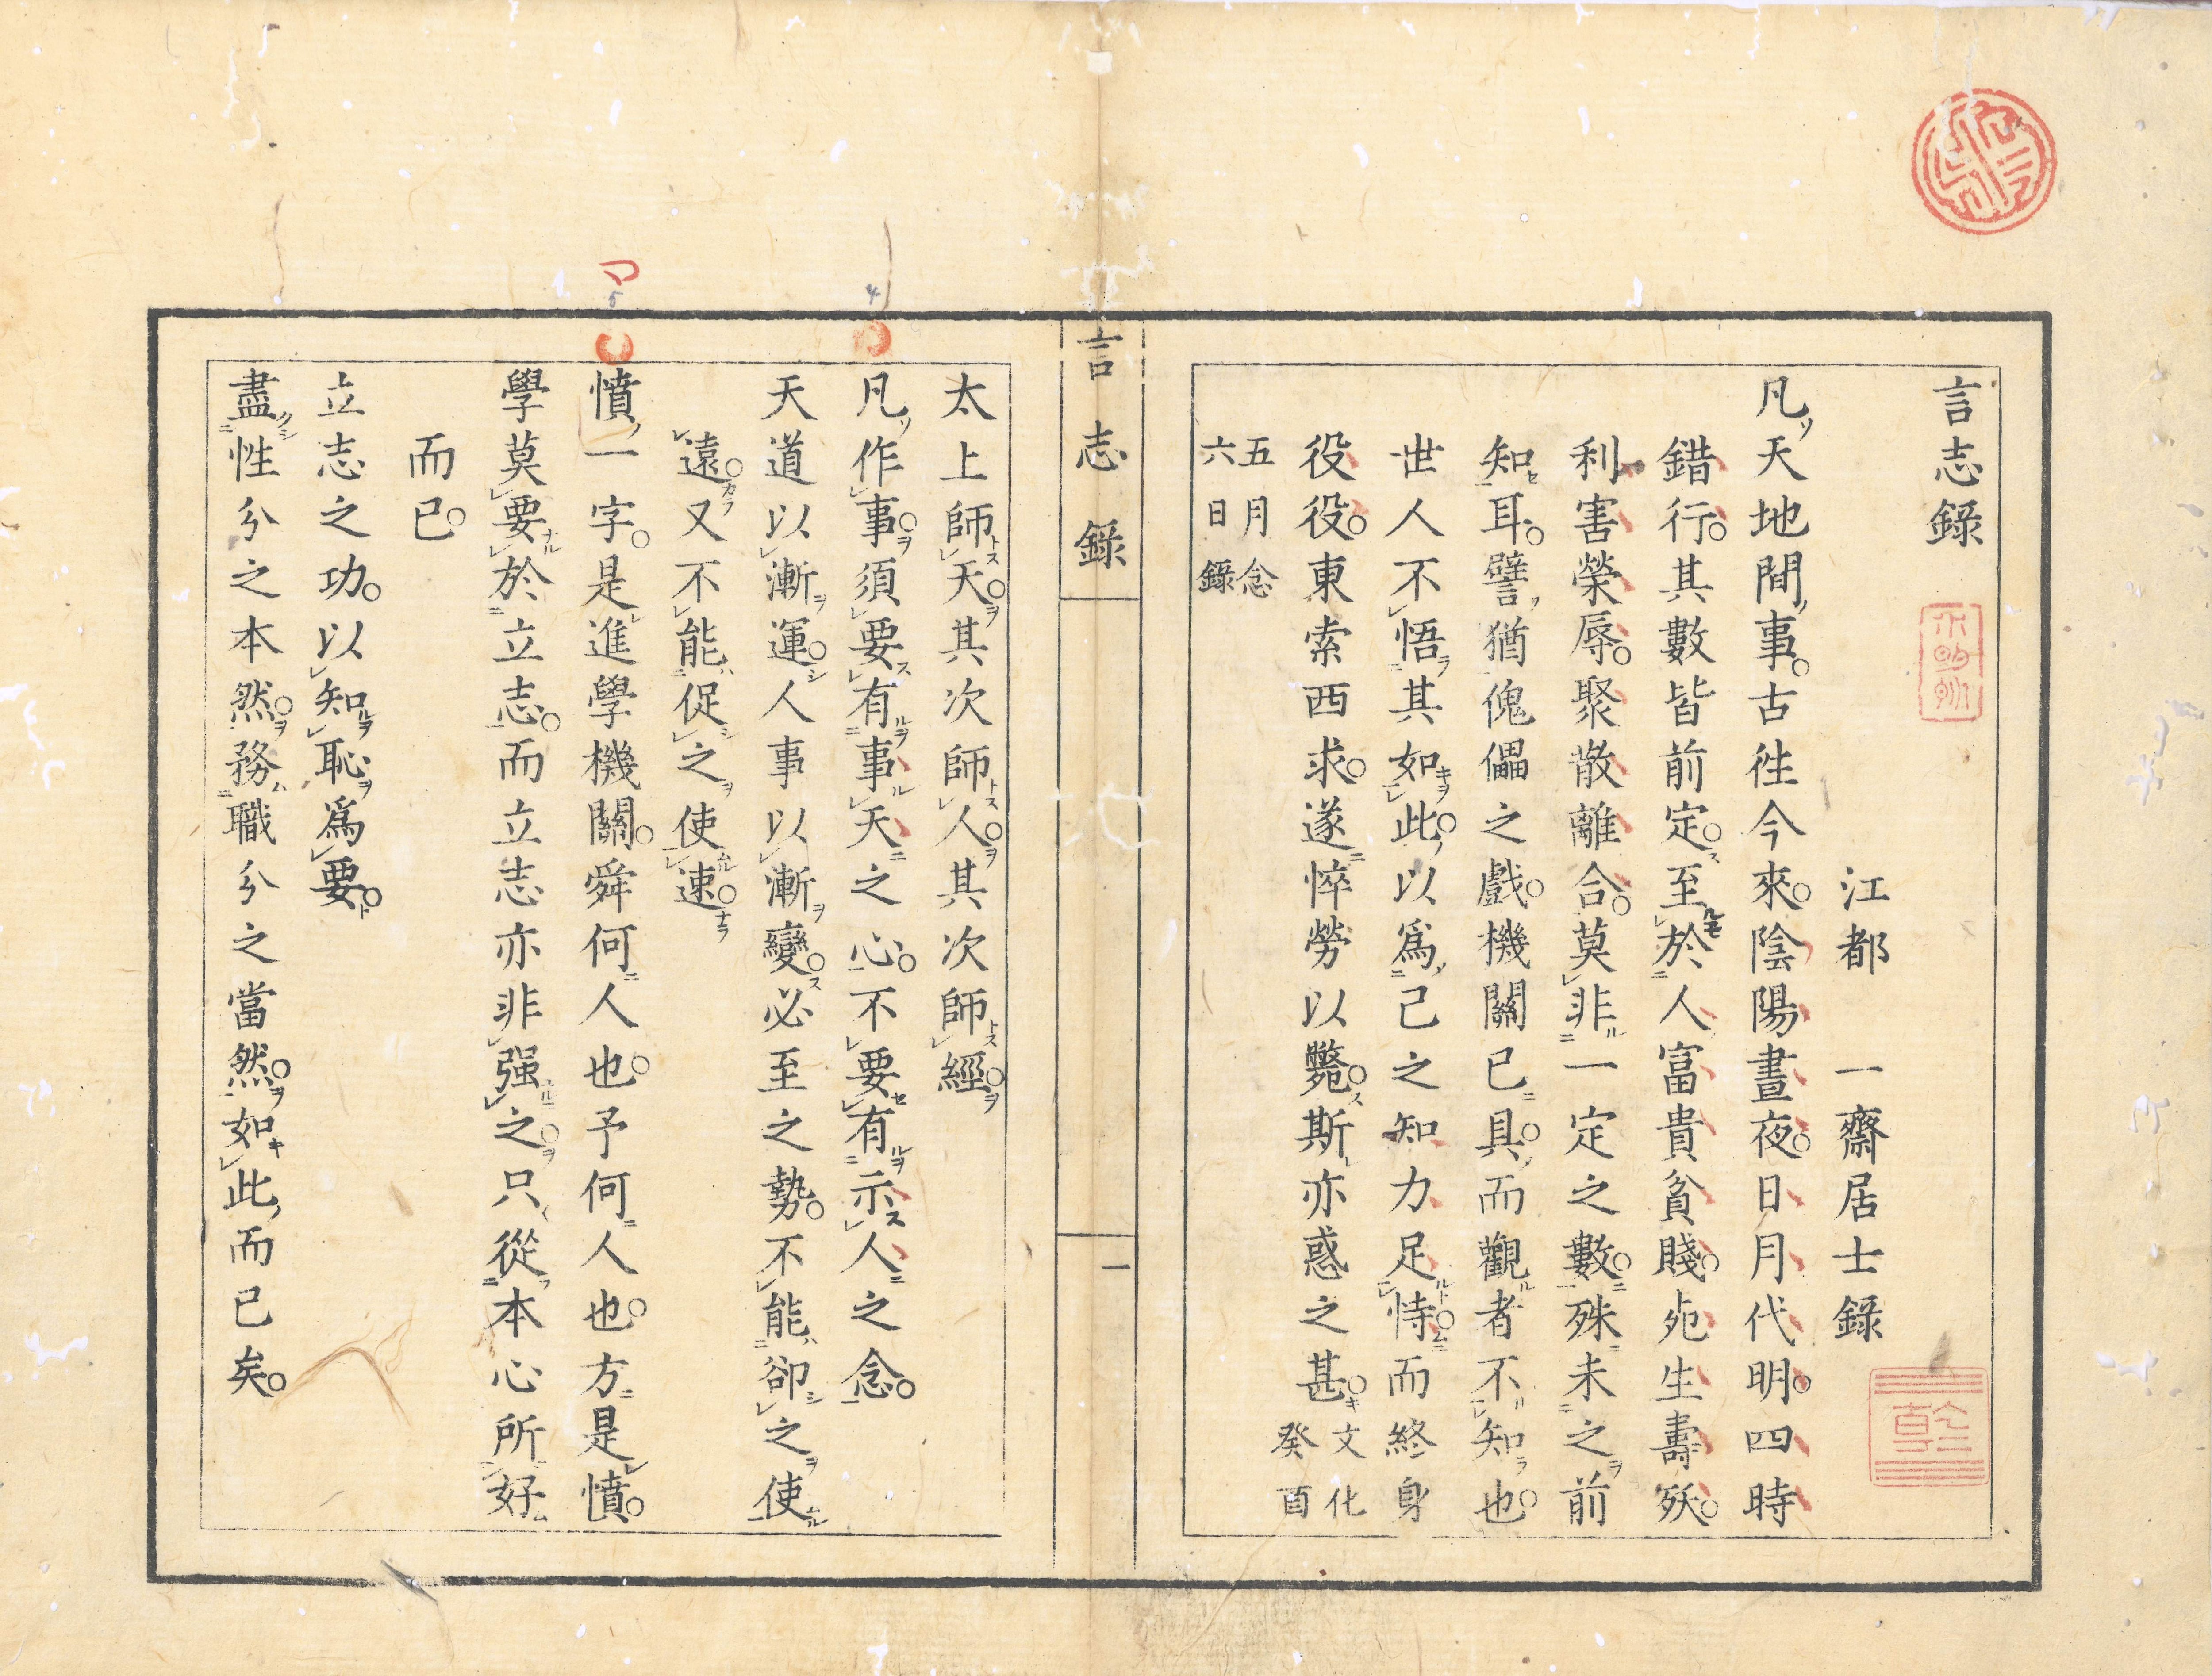 言志錄
江都 一齋居士錄
凡天地間事。古徃今來。陰陽晝夜。日月代明。四時
錯行。其數皆前定。至於人富貴貧賤。死生壽殀。
利害榮辱。聚散離合。莫非一定之數。殊未之前
知耳。譬猶傀儡之戲。機關已具。而觀者不知也。
世人不悟其如此。以爲己之知力足恃。而終身
役役。東索西求。遂悴勞以斃。斯亦惑之甚。文化癸酉
五月念六日錄
言志錄
一
太上師天。其次師人。其次師經。
凡作事。須要有事天之心。不要有示人之念。
天道以漸運。人事以漸變。必至之勢。不能卻之使
遠。又不能促之使速。
憤一字。是進學機關。舜何人也。予何人也。方是憤。
學莫要於立志。而立志亦非强之。只從本心所好
而已。
立志之功。以知恥爲要。
盡性分之本然。務職分之當然。如此而已矣。
乾
4
5